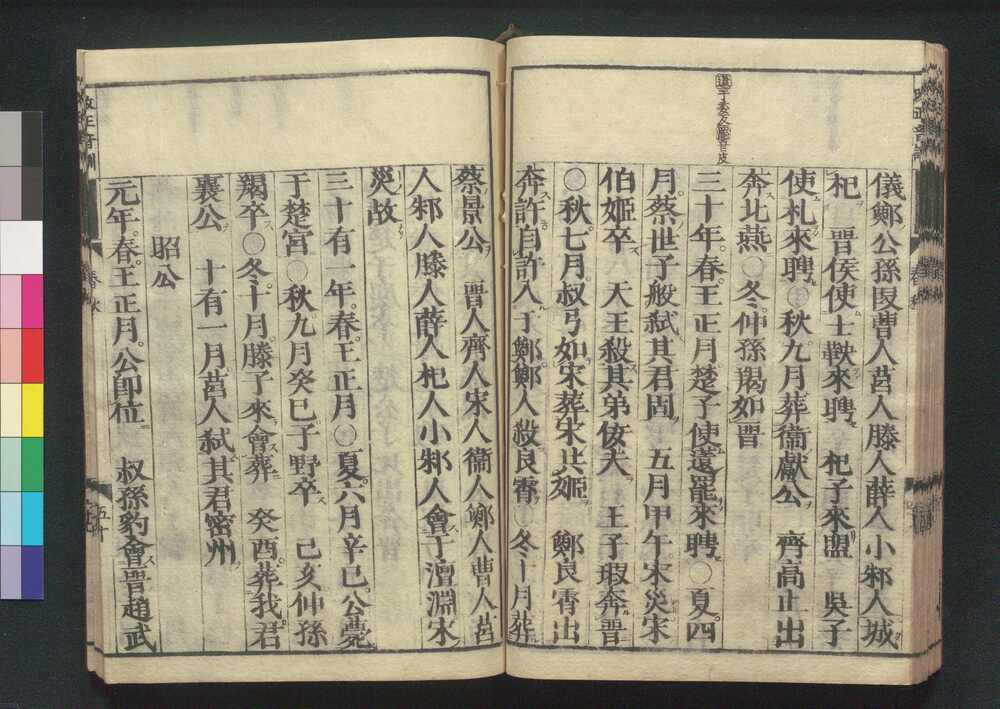 儀鄭公孫段曹人莒人滕人薛人小邾人城
杞　晋侯使士鞅來聘　杞子來盟　吳子
使札來聘〇秋九月葬衞獻公　齊高止出
奔北燕〇冬仲孫羯如晋
三十年春王正月楚子使薳罷來聘〇夏四
月蔡世子般弑其君固　五月甲午宋災宋
伯姬卒　天王殺其弟佞夫　王子瑕奔晋
〇秋七月叔弓如宋葬宋共姬　鄭良霄出
奔許自許入于鄭鄭人殺良霄〇冬十月葬
蔡景公　晋人齊人宋人衞人鄭人曹人莒
人邾人滕人薛人杞人小邾人會于澶淵宋
災故
三十有一年春王正月〇夏六月辛巳公薨
于楚宮〇秋九月癸巳子野卒　己亥仲孫
羯卒〇冬十月滕子來會葬　癸酉葬我君
襄公　十有一月莒人弑其君密州
昭公
元年春王正月公即位　叔孫豹會晋趙武
改正音訓
春秋
五十